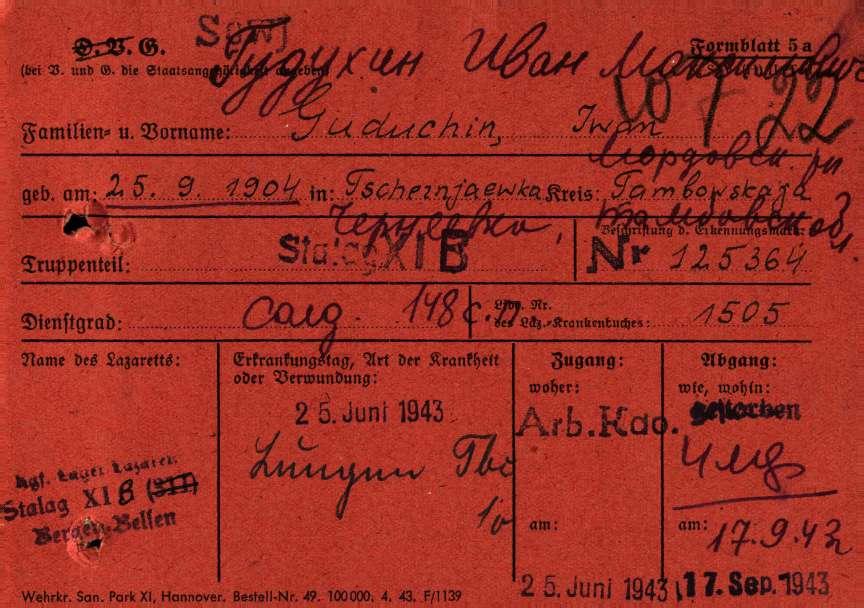 D.V.G. Sowj Formblatt 5a
(bei V. und G. die Staatsangehörigkeit angeben)
Гудухин Иван
Familien- u. Vorname: Guduchin, Iwan
Мордовск.
geb. am: 25. 9. 1904 in: Tschernjaewka Kreis: Tambowskaja
Тамбовск. обл.
Beschriftung d. Erkennungsmarke:
Truppenteil: Stalag XI B Nr 125364
Dienstgrad: солд. 148 с.п. Lfde. Nr. des Laz.-Krankenbuches: 1505
Name des Lazaretts:
Kgf. Lager Lazarett
Stalag XI B (311)
Bergen-Belsen
Erkrankungstag, Art der Krankheit
oder Verwundung:
25. Juni 1943
Lungen Tbc
Zugang:
woher:
Arb. Kdo.
am:
25. Juni 1943
Abgang:
wie, wohin:
gestorben
am: 17.9.43
17. Sep. 1943
Wehrkr. San. Park XI, Hannover. Bestell-Nr. 49. 100000. 4. 43. F/1139